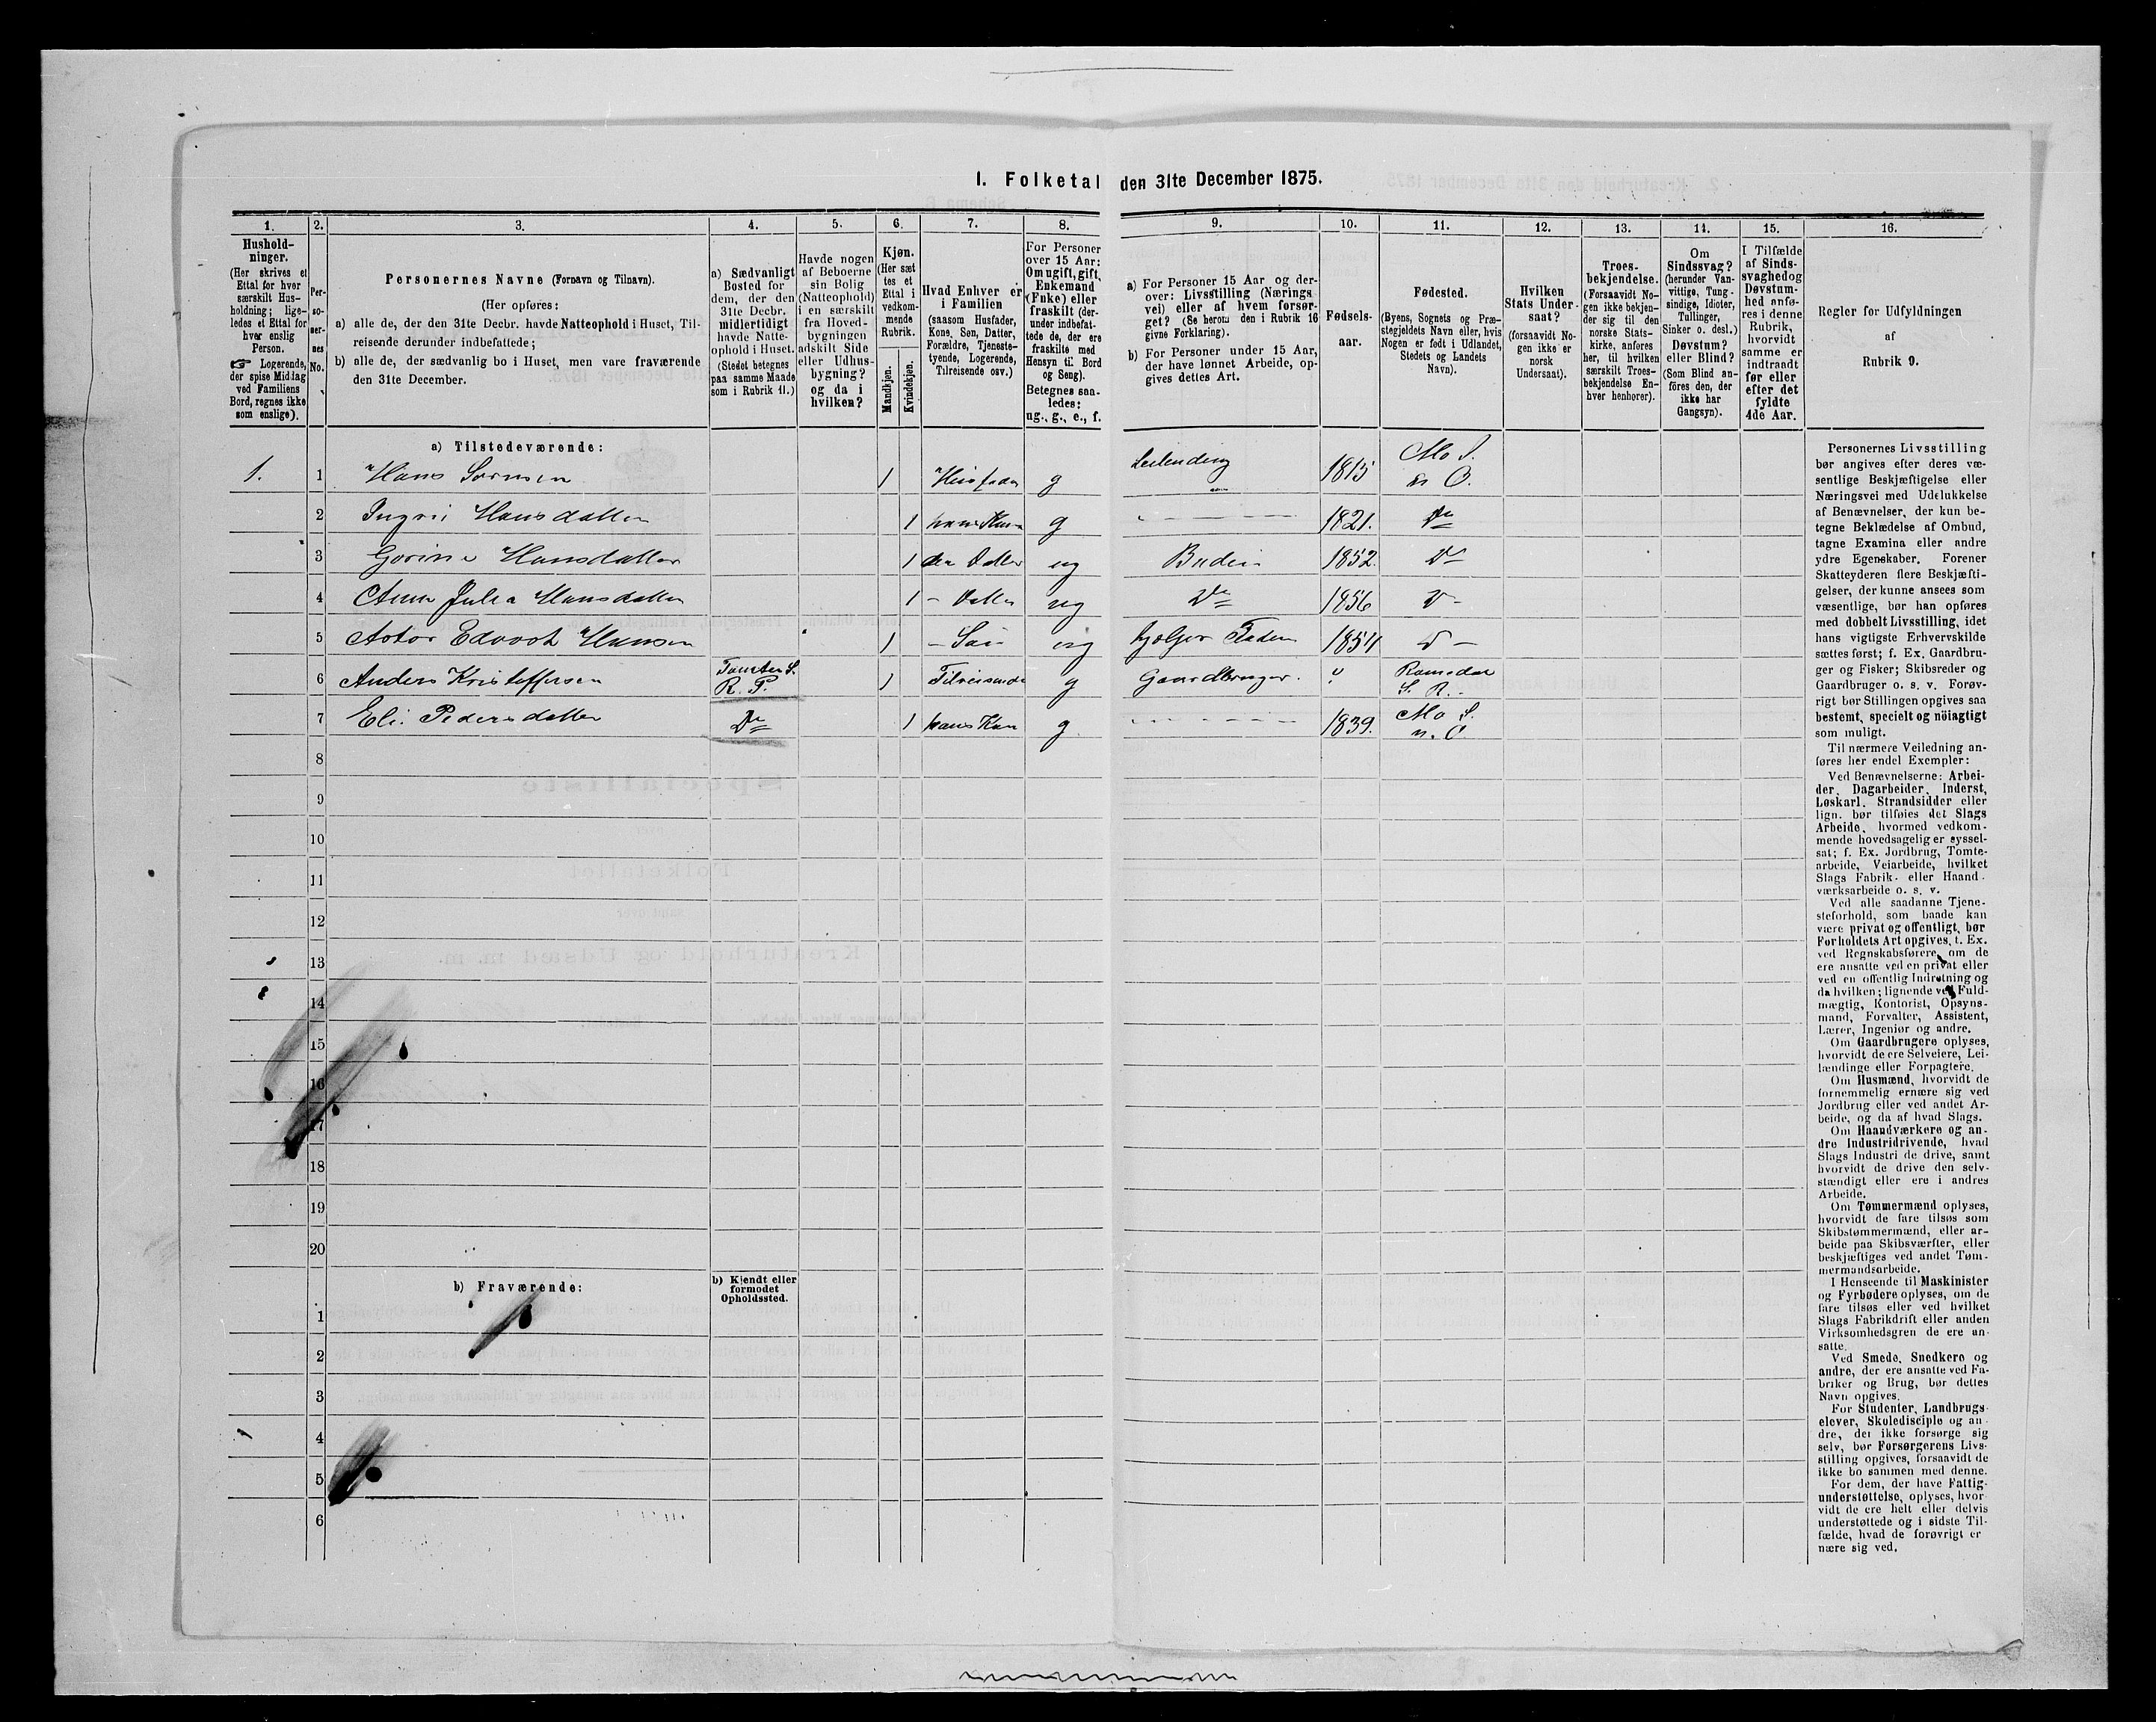 1. Folketal den 31te December 1875.
1. 2. 3. 4. 5. 6. 7. 8. 9. 10. 11. 12. 13. 14. 15. 16.
Hushold-
ninger.
(Her skrives et
Ettal for hver
særskilt Hus-
holdning; lige-
ledes et Ettal for
hver enslig
Person.
☞ Logerende,
der spise Middag
ved Familiens
Bord, regnes ikke
som enslige).
Per-
so-
ner-
nes
No.
Personernes Navne (Fornavn og Tilnavn).
(Her opføres:
a) alle de, der den 31te Decbr. havde Natteophold i Huset, Til-
reisende derunder indbefattede;
b) alle de, der sædvanlig bo i Huset, men vare fraværende
den 31te December.
a) Sædvanligt
Bosted for
dem, der den
31te Decbr.
midlertidigt
havde Natte-
ophold i Huset.
(Stedet betegnes
paa samme Maade
som i Rubrik 11.)
Havde nogen
af Beboerne
sin Bolig
(Natteophold)
i en særskilt
fra Hoved-
bygningen
adskilt Side
eller Udhus-
bygning?
og da i
hvilken?
Kjøn.
(Her sæt
tes et
Ettal i
vedkom-
mende
Rubrik.
Mandkjøn.
Kvindekjøn.
Hvad Enhver er
i Familien
(saasom Husfader,
Kone, Søn, Datter,
Forældre, Tjeneste-
tyende, Logerende,
Tilreisende osv.)
For Personer
over 15 Aar:
Om ugift, gift,
Enkemand
(Enke) eller
fraskilt (der-
under indbefat-
tede de, der ere
fraskilte med
Hensyn til Bord
og Seng).
Betegnes saa-
ledes:
ug., g., e., f.
a) For Personer 15 Aar og der-
over: Livsstilling (Nærings
vei) eller af hvem forsør-
get? (Se herom den i Rubrik 16
givne Forklaring).
b) For Personer under 15 Aar,
der have lønnet Arbeide, op-
gives dettes Art.
Fødsels-
aar.
Fødested.
(Byens, Sognets og Præ-
stegjeldets Navn eller, hvis
Nogen er født i Udlandet,
Stedets og Landets
Navn).
Hvilken
Stats Under-
saat?
(forsaavidt No-
gen ikke er
norsk
Undersaat).
Troes-
bekjendelse.
(Forsaavidt No-
gen ikke bekjen-
der sig til den
norske Stats-
kirke, anføres
her, til hvilken
særskilt Troes-
bekjendelse En-
hver henhører).
Om
Sindssvag?
(herunder Van-
vittige, Tung-
sindige, Idioter,
Tullinger,
Sinker o. desl.)
Døvstum?
eller Blind?
(Som Blind an-
föres den, der
ikke har
Gangsyn).
I Tilfælde
af Sinds-
svaghed og
Døvstum-
hed anfø-
res i denne
Rubrik,
hvorvidt
samme er
indtraadt
før eller
efter det
fyldte
4de Aar.
Regler for Udfyldningen
af
Rubrik 9.
a) Tilstedeværende:
1. 1 Hans 1 Husfader g Leilending 1815 Mo S.
2 Hansdatter 1 hans Kone g 1821. Do
3 Hansdatter 1 Datter ug 1852. Do
4 Hansdatter 1 – Datter ug Do 1856 D –
5 Hansen 1 – Søn ug hjælper Faderen D –
6 Anders Kristoffersen R. P. 1 Tilreisende g Gaardbruger. Romsdal
S. R.
7 Eli Pedersdatter Do 1 hans Kone g 1839. Mo S.
8
9
10
11
12
13
14
15
16
17
18
19
20
b) Fraværende:
b) Kjendt eller
formodet
Opholdssted.
1
2
3
4
5
6
Personernes Livsstilling
bør angives efter deres væ-
sentlige Beskjæftigelse eller
Næringsvei med Udelukkelse
af Benævnelser, der kun be-
tegne Beklædelse af Ombud,
tagne Examina eller andre
ydre Egenskaber. Forener
Skatteyderen flere Beskjæfti-
gelser, der kunne ansees som
væsentlige, bør han opføres
med dobbelt Livsstilling, idet
hans vigtigste Erhvervskilde
sættes først; f. Ex. Gaardbru-
ger og Fisker; Skibsreder og
Gaardbruger o. s. v. Forøv-
rigt bør Stillingen opgives saa
bestemt, specielt og nöiagtigt
som muligt.
Til nærmere Veiledning an-
føres her endel Exempler:
Ved Benævnelserne: Arbei-
der, Dagarbeider, Inderst,
Løskarl, Strandsidder eller
lign. bør tilføies det Slags
Arbeide, hvormed vedkom-
mende hovedsagelig er syssel-
sat; f. Ex. Jordbrug, Tomte-
arbeide, Veiarbeide, hvilket
Slags Fabrik- eller Haand-
værksarbeide o. s. v.
Ved alle saadanne Tjene-
steforhold, som baade kan
være privat og offentligt, bør
Forholdets Art opgives, t. Ex.
ved Regnskabsførere, om de
ere ansatte ved en privat eller
ved en offentlig Indretning og
da hvilken; lignende ved Fuld-
mægtig, Kontorist, Opsyns-
mand, Forvalter, Assistent,
Lærer, Ingeniør og andre.
Om Gaardbrugere oplyses,
hvorvidt de ere Selveiere, Lei-
lændinge eller Forpagtere.
Om Husmænd, hvorvidt de
fornemmelig ernære sig ved
Jordbrug eller ved andet Ar-
beide, og da af hvad Slags.
Om Haandværkere og an-
dre Industridrivende, hvad
Slags Industri de drive, samt
hvorvidt de drive den selv-
stændigt eller ere i andres
Arbeide.
Om Tømmermænd oplyses,
hvorvidt de fare tilsøs som
Skibstømmermænd, eller ar-
beide paa Skibsværfter, eller
beskjæftiges ved andet Tøm-
mermandsarbeide.
I Henseende til Maskinister
og Fyrbødere oplyses, om de
fare tilsøs eller ved hvilket
Slags Fabrikdrift eller anden
Virksomhedsgren de ere an-
satte.
Ved Smede, Snedkere og
andre, der ere ansatte ved Fa-
briker og Brug, bør dettes
Navn opgives.
For Studenter, Landbrugs-
elever, Skoledisciple og an-
dre, der ikke forsørge sig
selv, bør Forsørgerens Livs-
stilling opgives, forsaavidt de
ikke bo sammen med denne.
For dem, der have Fattig-
understøttelse, oplyses, hvor-
vidt de ere helt eller delvis
understøttede og i sidste Til-
fælde, hvad de forøvrigt er
nære sig ved.